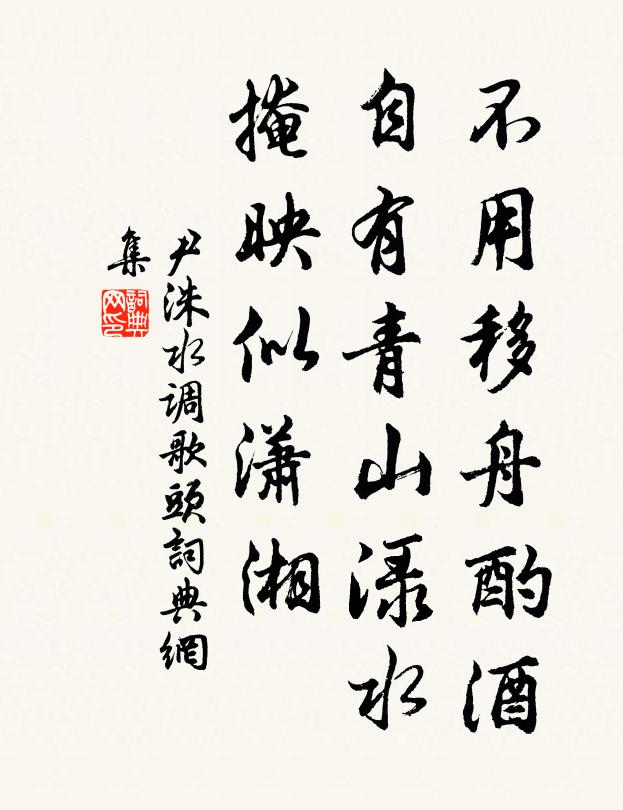 不用移舟酌酒
自有青山渌水
掩映似瀟湘
尹洙水调歌頭詞典網
集
詞典
网印